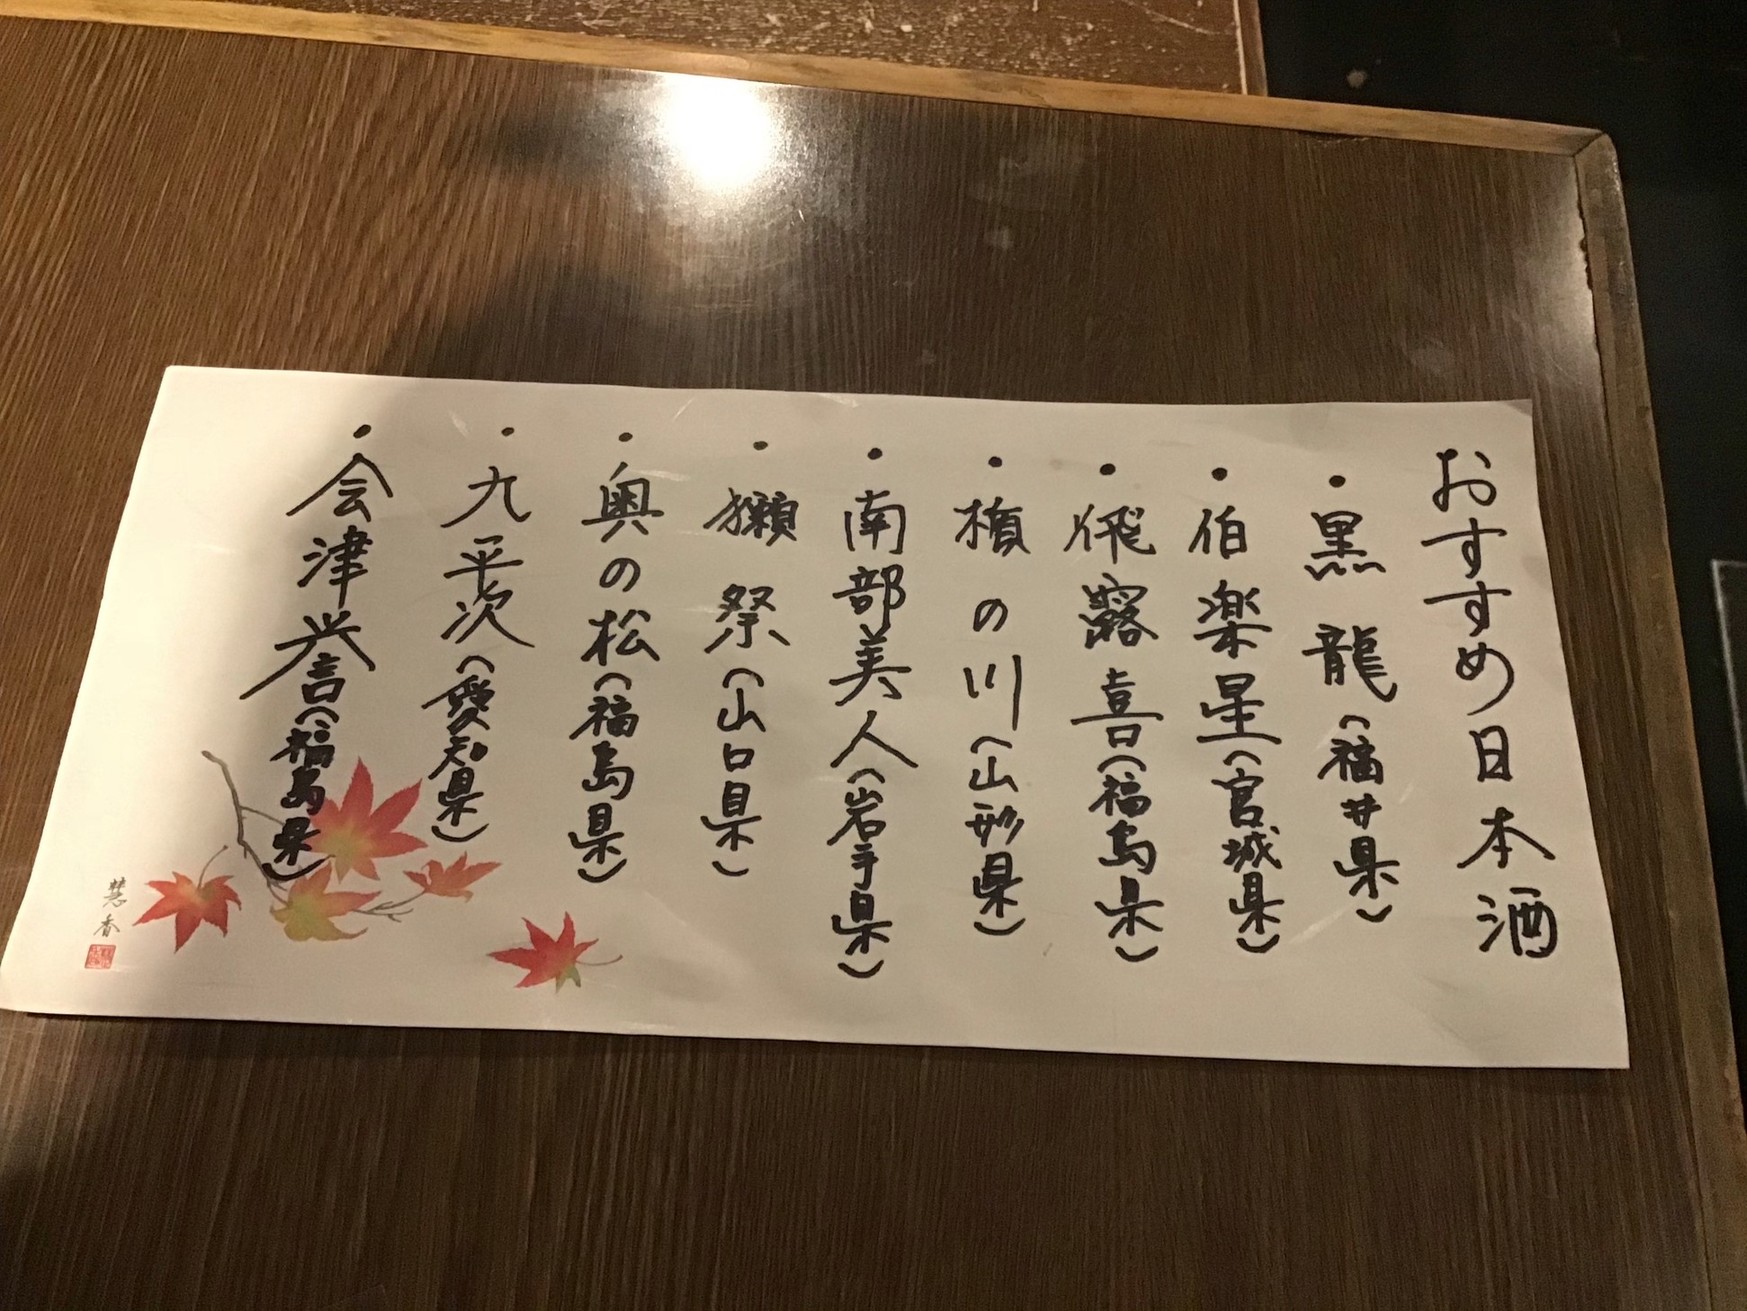 おすすめ日本酒
・黒龍(福井県)
・伯楽星(宮城県)
・飛露喜(福島県)
・楯の川(山形県)
・南部美人(岩手県)
・獺祭(山口県)
・奥の松(福島県)
・九平次(愛知県)
・会津誉(福島県)
慧香